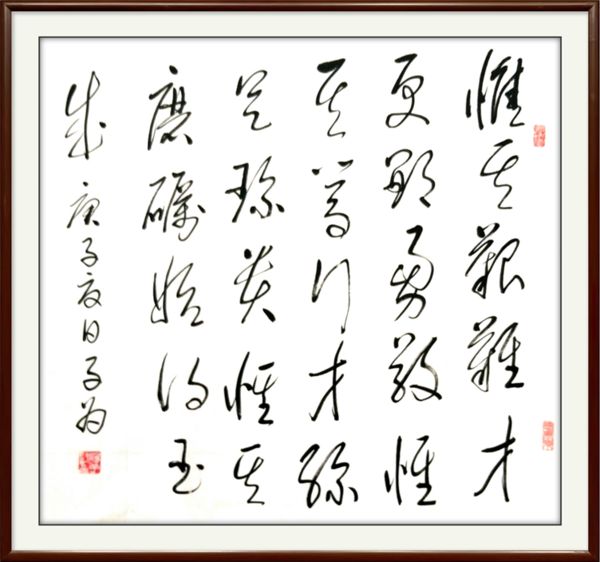 惟其艱難才
更顯勇毅惟
其篤行才彌
足珍貴惟其
磨礪始得玉
成 庚子夏日子为